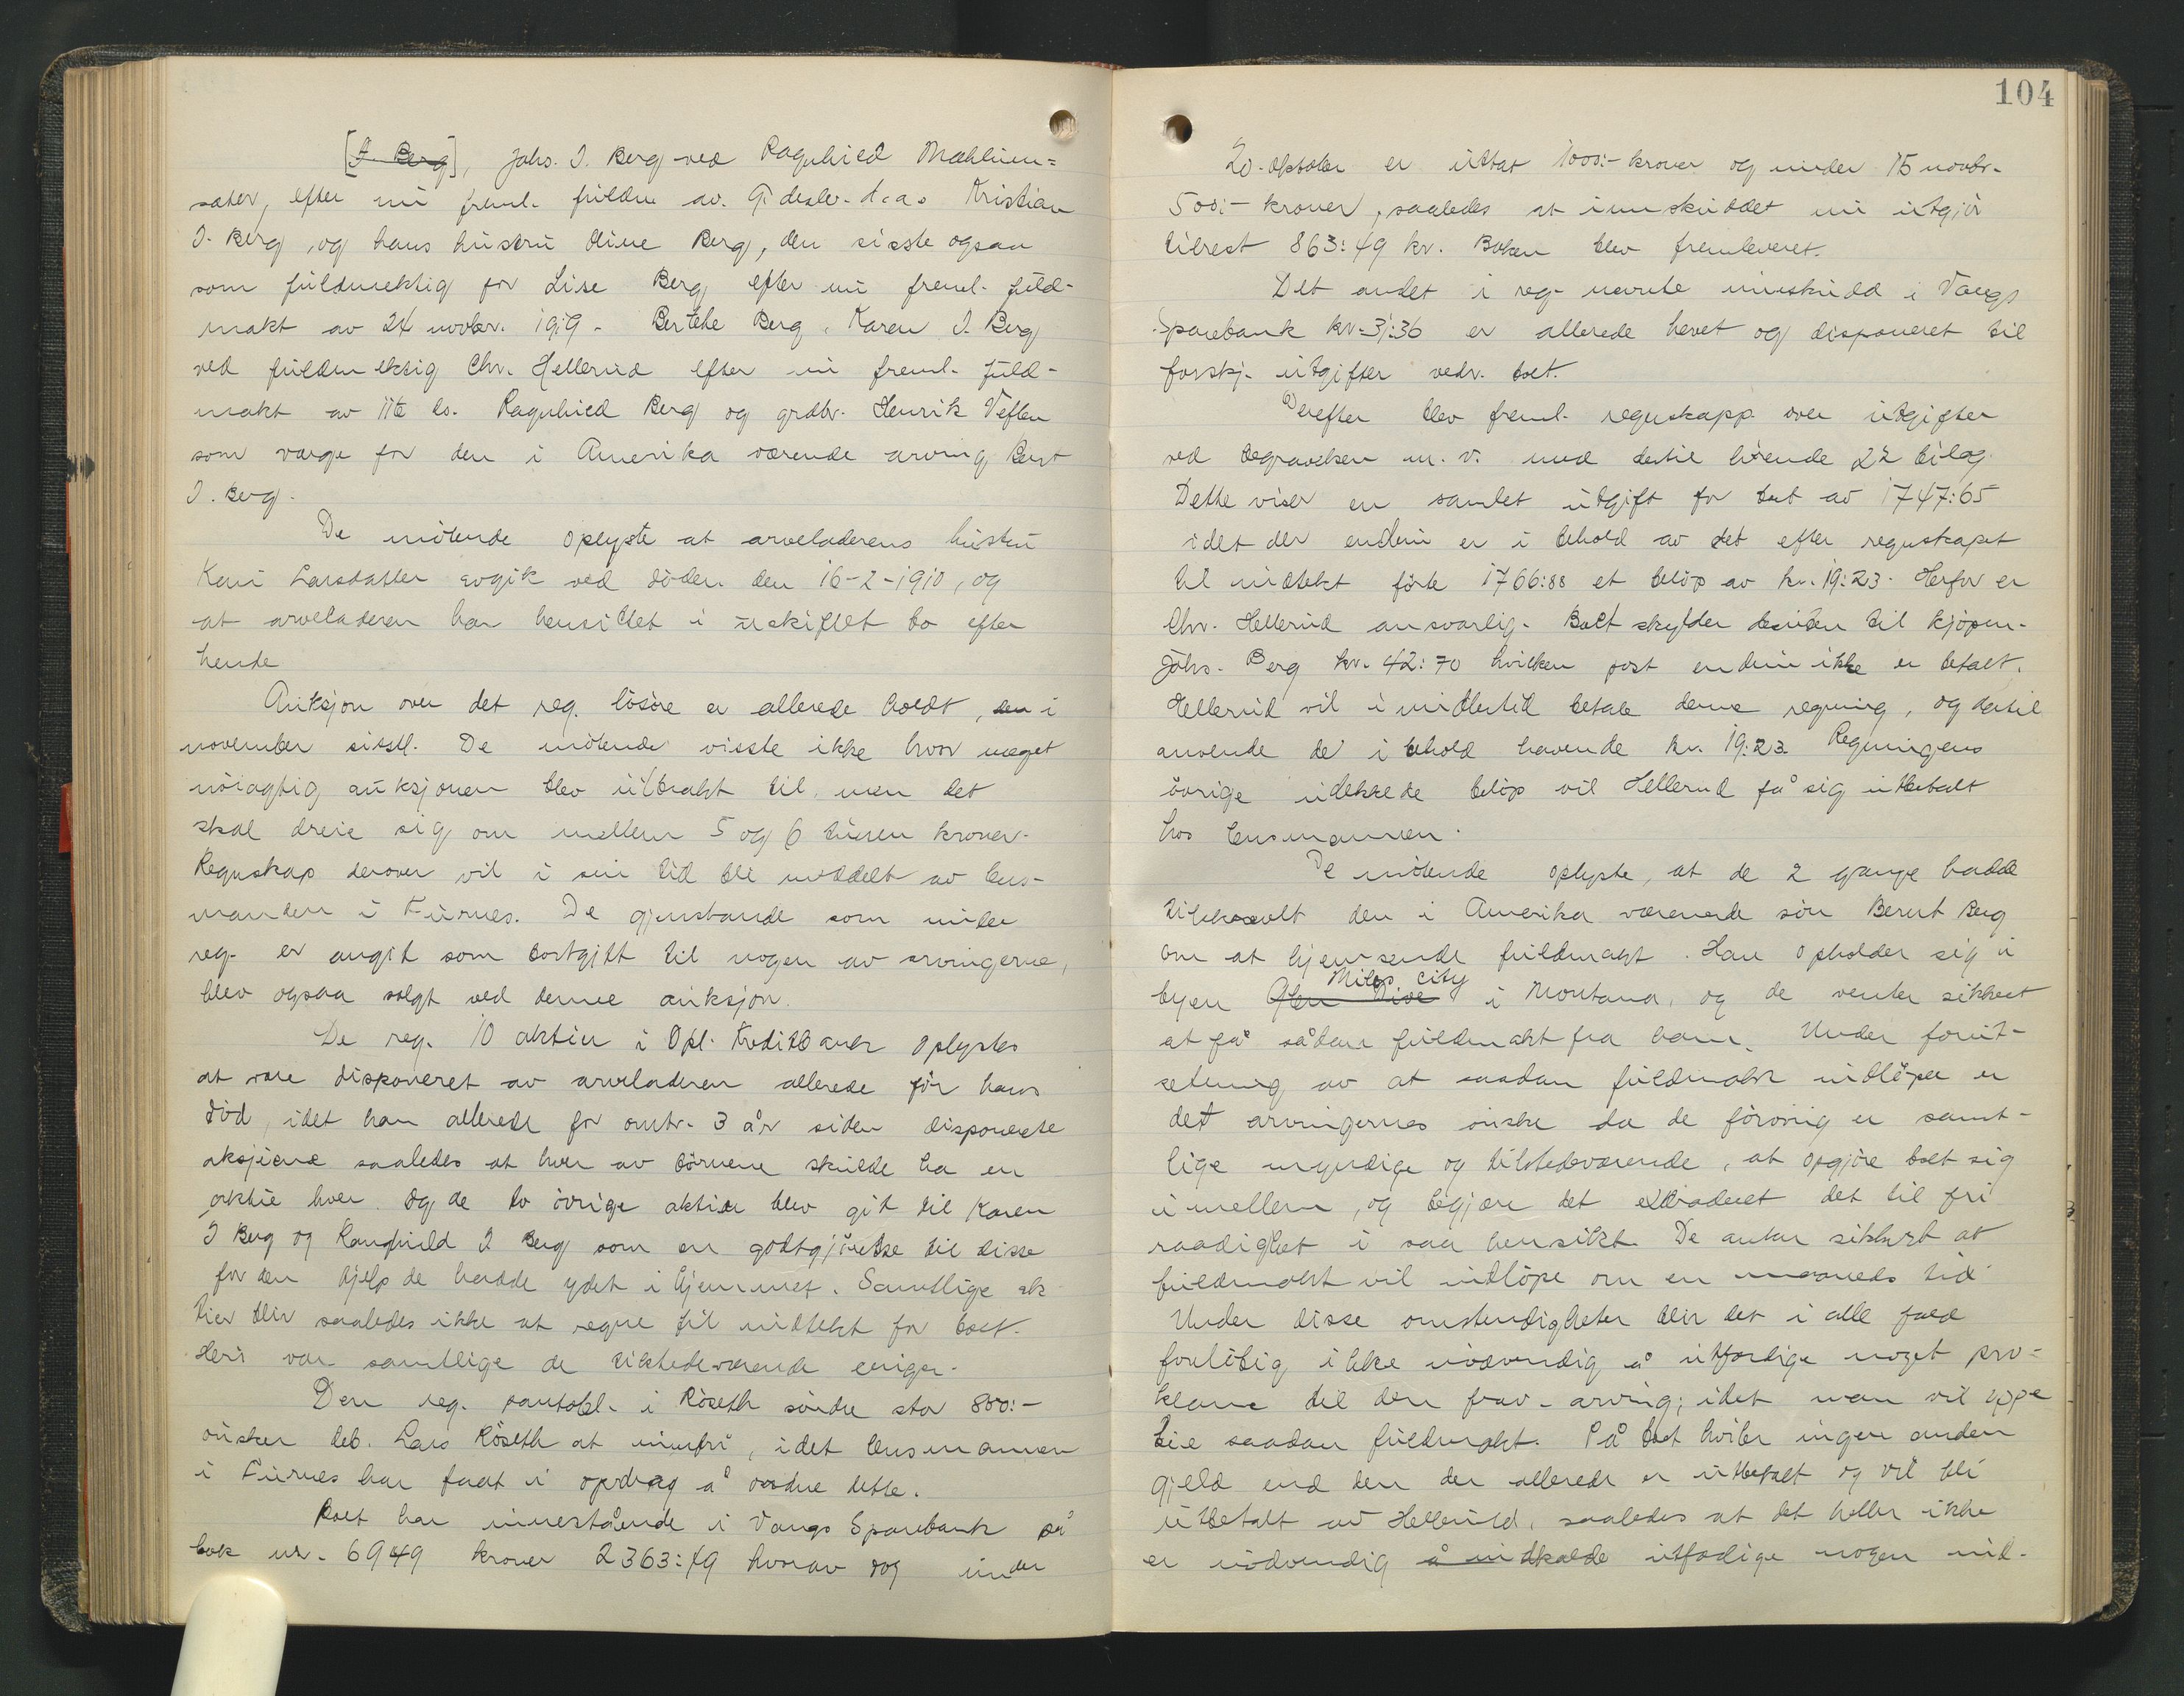 [J. Berg], Johs. J. Berg ved Ragnhild Mæhlum=
sæter, efter nu freml. fuldm. av 9 desbr. d.a. Kristian
J. Berg, og hans hustru Oline Berg, den sisste ogsaa
som fuldmektig for Lise Berg efter nu freml. fuld-
makt av 24 novbr. 1919. Berthe Berg, Karen J. Berg
ved fuldmektig Chr. Hellerud efter nu freml. fuld-
makt av 11te ds. Ragnhild Berg og grdbr. Henrik Veflen
som værge for den i Amerika værende arving Bernt
J. Berg.
De møtende oplyste at arveladerens hustru
Kari Larsdatter avgik ved døden den 16-2-1910, og
at arveladeren har hensittet i uskiftet bo efter
hende
Auksjon over det reg. løsøre er allerede holdt, den i
november sisstl. De møtende visste ikke hvor meget
nøiagtig auksjonen blev utbrakt til, men det
skal dreie sig om mellem 5 og 6 tusen kroner.
Regnskap derover vil i sin tid bli meddelt av lens-
manden i Furnes. De gjenstande som under
reg. er angit som bortgitt til nogen av arvingerne,
blev ogsaa solgt ved denne auksjon.
De reg. 10 aktier i Opl. Kreditbank oplystes
at være disponeret av arveladeren allerede før hans
död, idet han allerede for omtr. 3 år siden disponerte
aksjerne saaledes at hver av börnene skulde ha en
aktie hver og de to övrige aktier blev git til Karen
J Berg og Rangnhild J Berg som en godtgjörelse til disse
for den hjelp de hadde ydet i hjemmet. Samtlige ak
tier blir saaledes ikke at regne til indtekt for boet.
Heri var samtlige de tilstedeværende enige.
Den reg. pantobl. i Röseth söndre stor 800:-
önsker deb. Lars Röseth at innfri, idet lensmannen
i Furnes har faat i opdrag å ordne dette.
Boet har innestående i Vangs Sparebank på
bok nr. 6949 kroner 2363:49 hvorav dog under
104
20. oktober er uttat 1000:- kroner og under 15 novbr.
500:- kroner, saaledes at innskuddet nu utgjör
tilrest 863:49 kr. Boken blev fremleveret.
Det andet i reg. nevnte innskudd i Vangs
Sparebank kr. 31:36 er allerede hevet og disponeret til
forskj. utgifter vedr. boet.
Derefter blev freml. regnskapp over utgifter
ved begravelsen m. v. med dertil hörende 22 bilag.
Dette viser en samlet utgift for boet av 1747:65
idet der endnu er i behold av det efter regnskapet
til indtekt förte 1766:88 et beløp av kr. 19:23. Herfor er
Chr. Hellerud ansvarlig. Boet skylder desuten til kjøpm.
Johs. Berg kr. 42:70 hvilken post endnu ikke er betalt.
Hellerud vil imidlertid betale denne regning, og dertil
anvende de i behold havende kr. 19:23. Regningens
övrige udekkede beløp vil Hellerud få sig utbetalt
hos lensmannen.
De møtende oplyste, at de 2 gange hadde
tilskrevet den i Amerika værende sön Bernt Berg
om at hjemsende fuldmakt. Han opholder sig i
byen Glen Dive Miles City i Montana, og de venter sikkert
at få sådan fuldmakt fra ham. Under forut-
setning av at saadan fuldmakt indlöper er
det arvingernes önske da de förövrig er samt-
lige myndige og tilstedeværende, at opgjöre boet sig
imellem, og begjære det extraderet det til fri
raadighet i saa hensikt. De antar sikkert at
fuldmakt vil indlöpe om en maaneds tid
Under disse omstendigheter blir det i alle fald
forelöbig ikke nödvendig å utfærdige noget pro-
klama til den frav. arving, idet man vil oppe
bie saadan fuldmakt. På boet hviler ingen anden
gjeld end den der allerede er utbetalt og vil bli
utbetalt av Hellerud, saaledes at det heller ikke
er nödvendig å indkalde utfædige nogen ind-